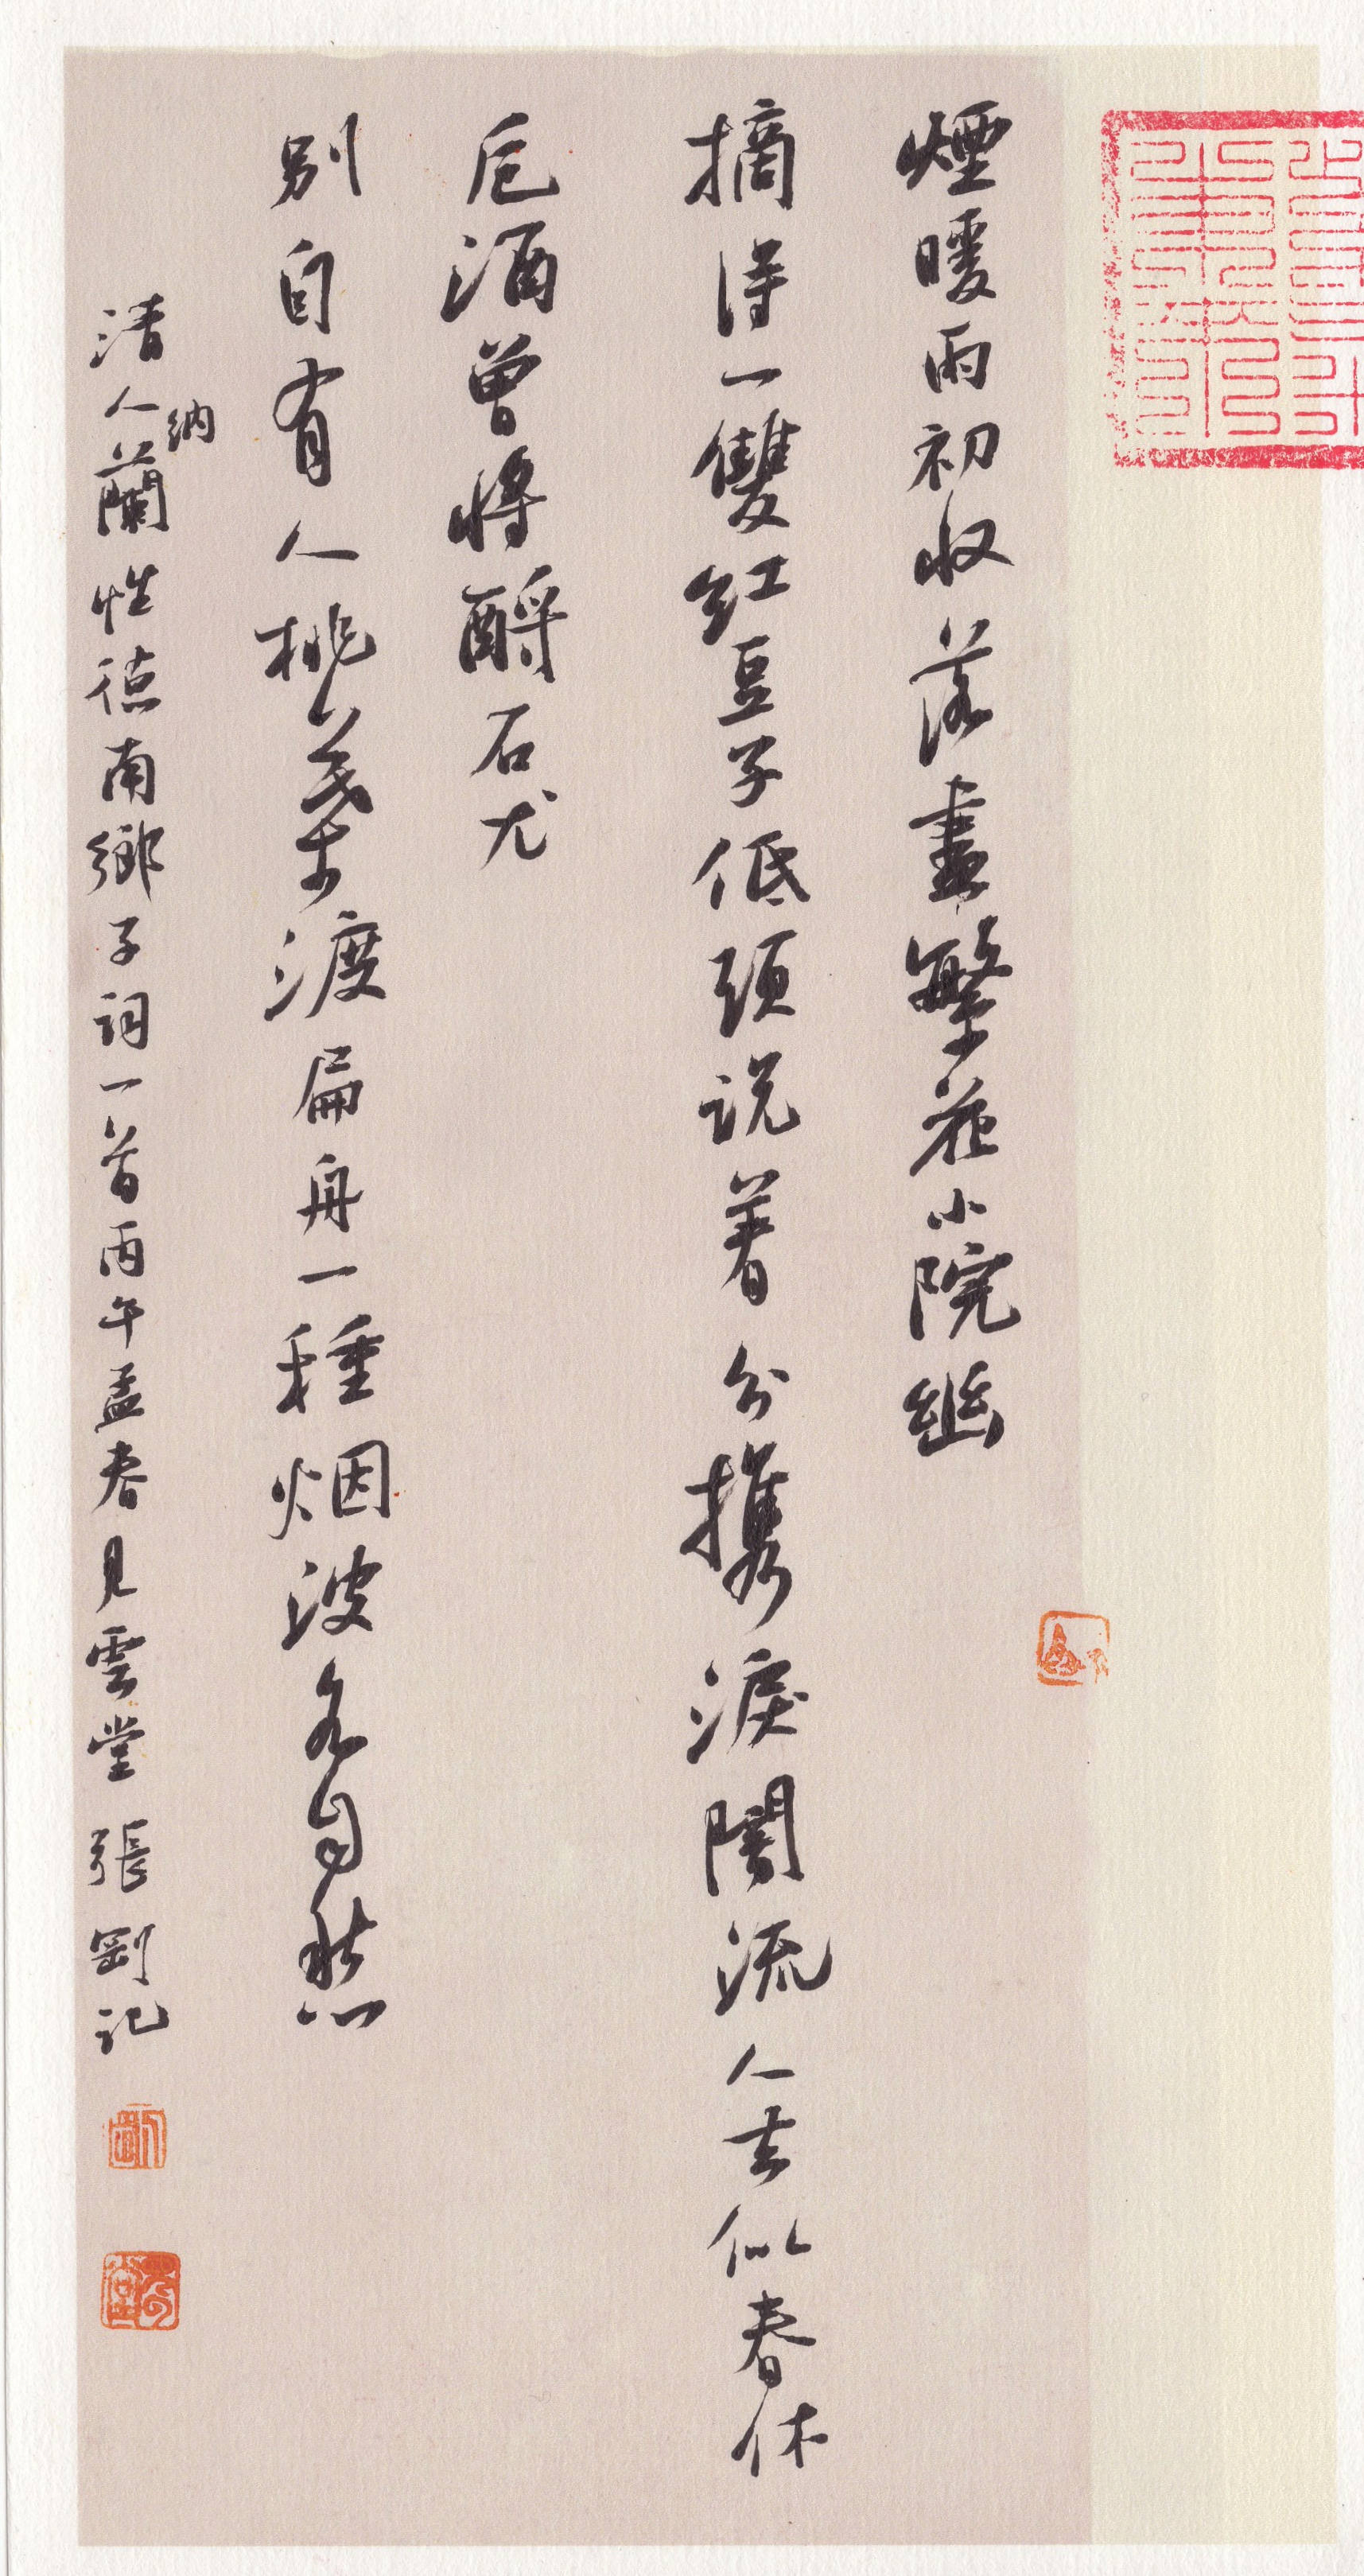 煙暖雨初收落盡繁花小院幽
摘得一雙紅豆子低頭説著分攜淚闇流人去似春休
卮酒曾將酹石尤
別自有人桃葉渡扁舟一種烟波各自愁
清人納蘭性德南鄉子詞一首丙午孟春見雲堂張剛記